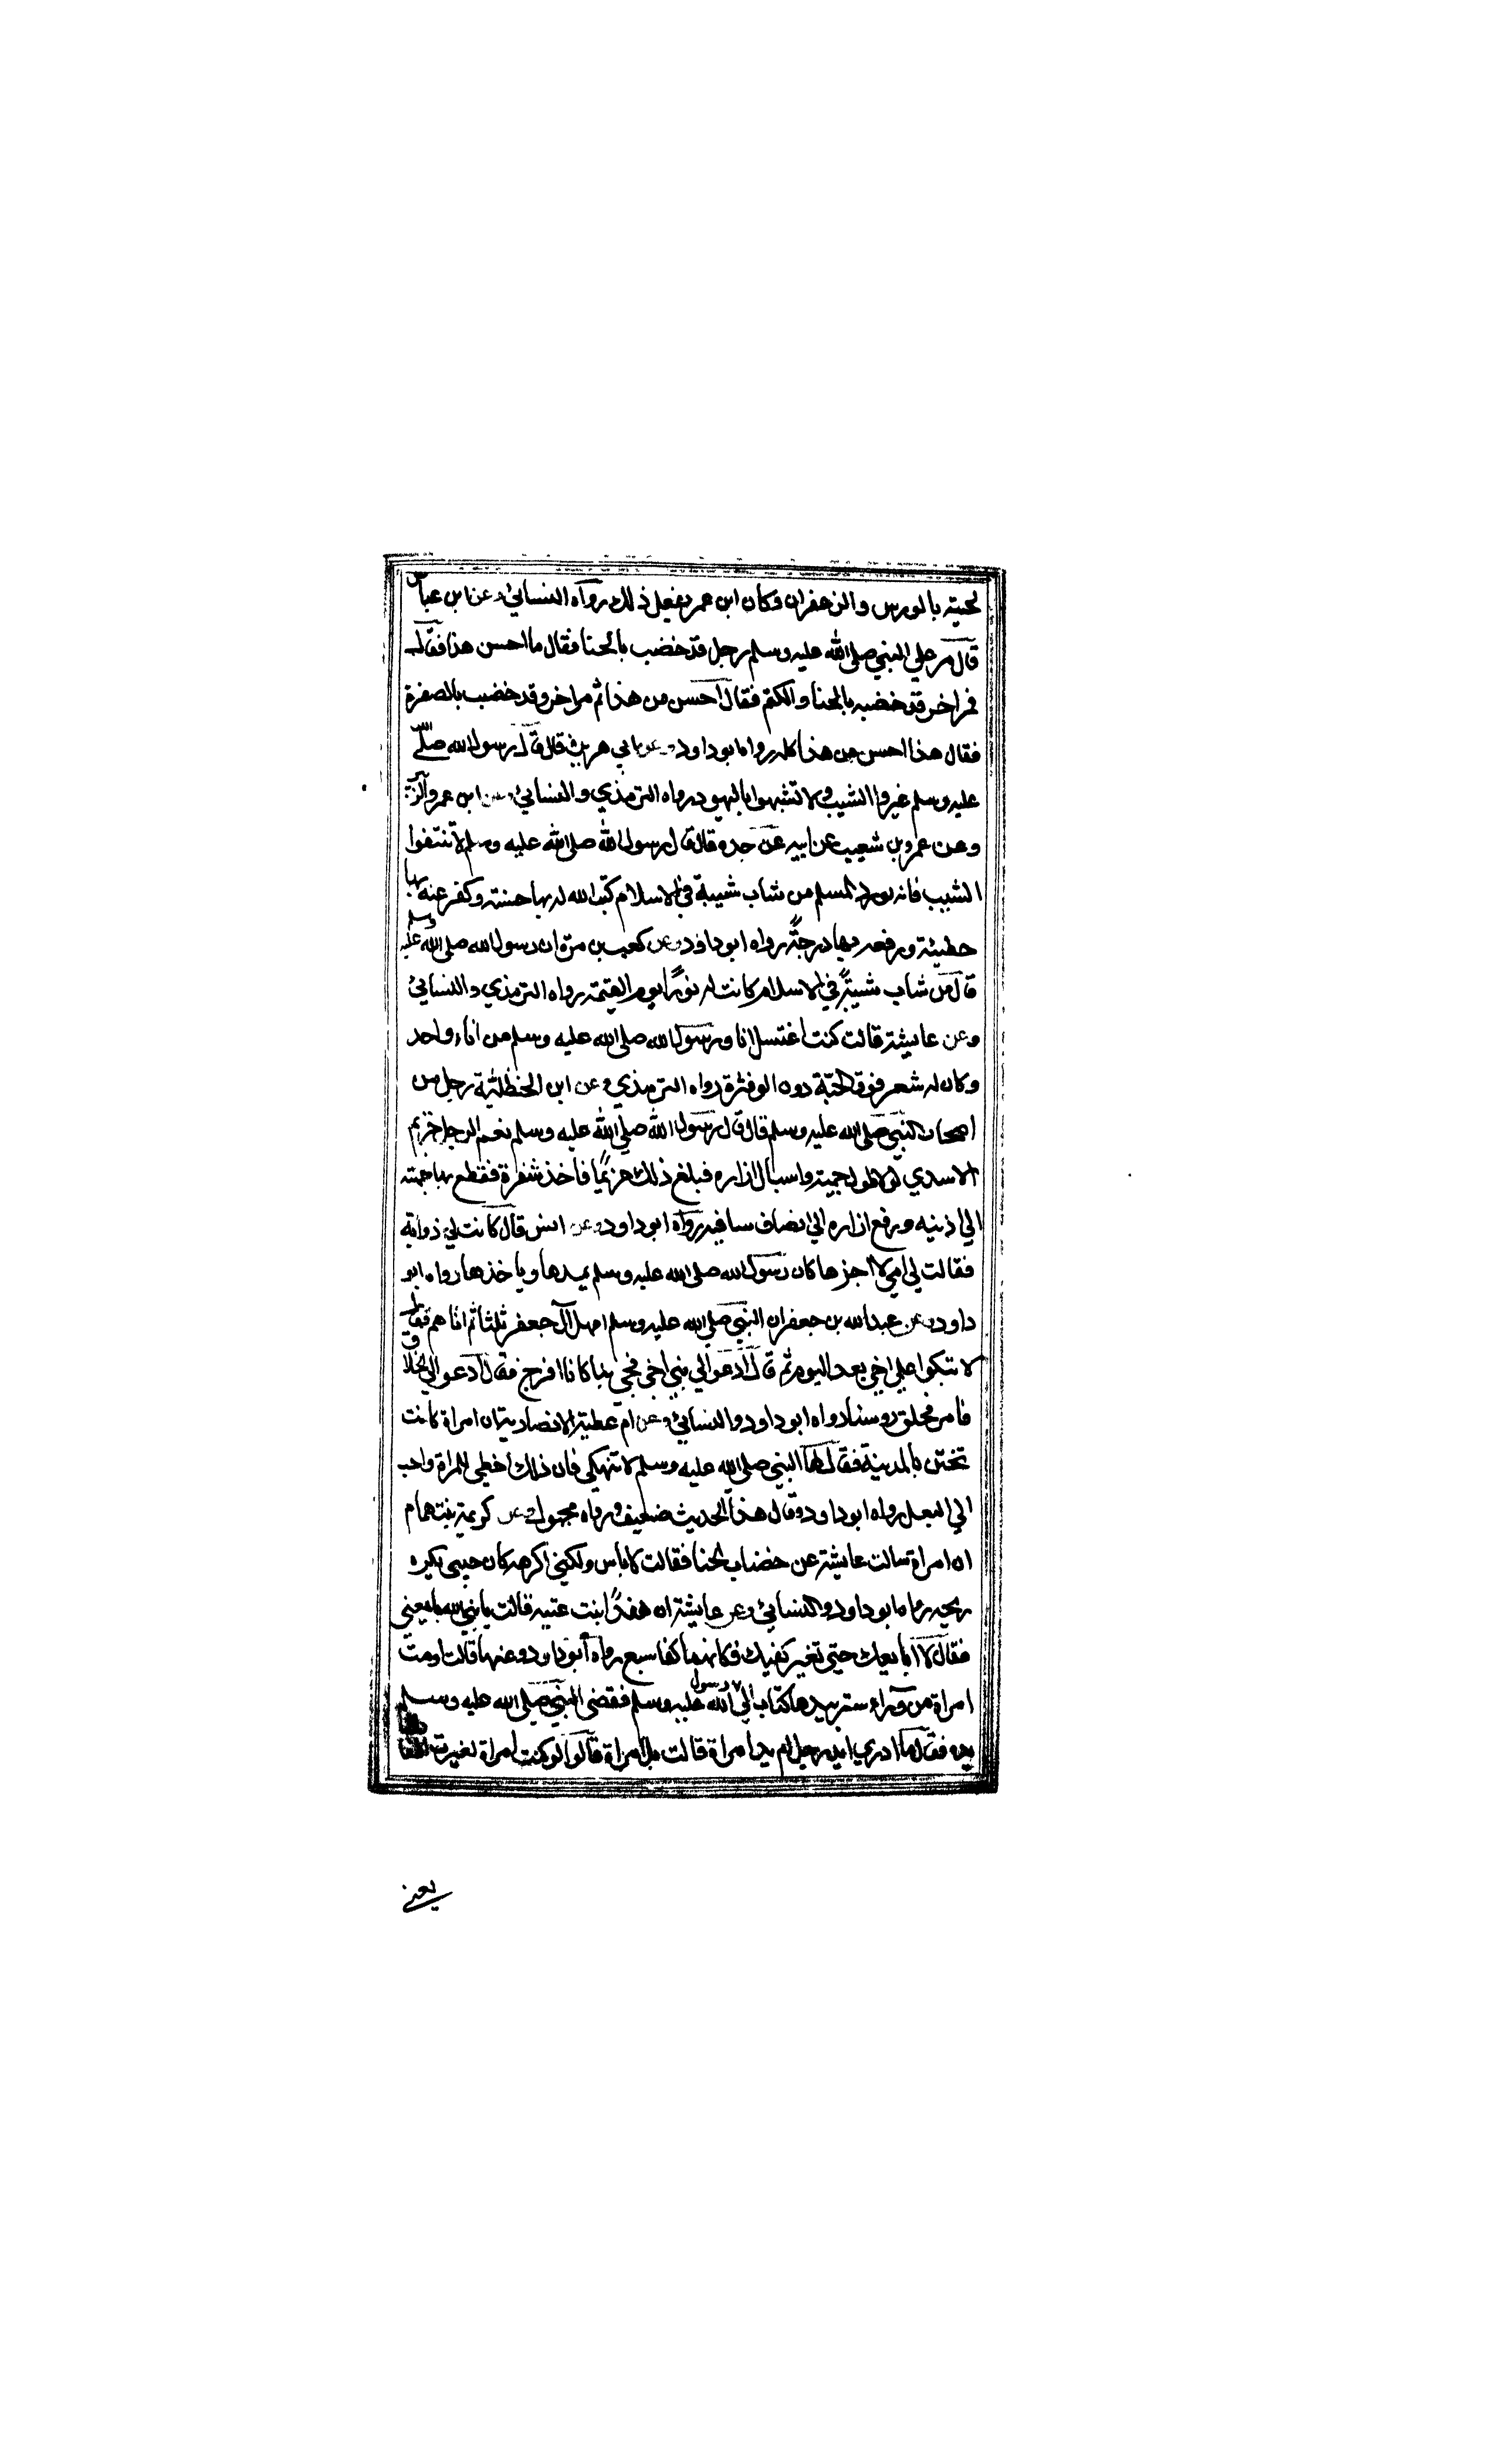 لحيته بالورس والزعفران وكان ابن عمر يفعل ذلك رواه النسائي وعن ابن عباس
قال مر علي النبي صلي الله عليه وسلم رجل قد خضب بالحنا فقال ما احسن هذا فقال
فمر اخر قد خضب بالحنا والكتم فقال احسن من هذا ثم مر اخر وقد خضب بالصفرة
فقال هذا احسن من هذا كله رواه ابو داود وعن ابي هريرة قال قال رسول الله صلي الله
عليه وسلم غيروا الشيب ولا تشبهوا باليهود رواه الترمذي والنسائي وعن ابن عمر والزبير
وعن عمرو بن شعيب عن ابيه عن جده قال قال رسول الله صلي الله عليه وسلم لا تنتفوا
الشيب فانه نور المسلم من شاب شيبة في الاسلام كتب الله له بها حسنة وكفر عنه بها
خطيئة ورفعه بها درجة رواه ابو داود وعن كعب بن مرة ان رسول الله صلي الله عليه وسلم
قال من شاب شيبة في الاسلام كانت له نورا يوم القيمة رواه الترمذي والنسائي
وعن عايشة قالت كنت اغتسل انا ورسول الله صلي الله عليه وسلم من اناء واحد
وكان له شعر فوق الجمة دون الوفرة رواه الترمذي وعن ابن الحنظلية رجل من
اصحاب النبي صلي الله عليه وسلم قال قال رسول الله صلي الله عليه وسلم نعم الرجل خزيم
الاسدي لولا طول جمته واسبال ازاره فبلغ ذلك خزيما فاخذ شفرة فقطع بها جمته
الي اذنيه ورفع ازاره الي انصاف ساقيه رواه ابو داود وعن انس قال كانت لي ذوابة
فقالت لي امي لا اجزها كان رسول الله صلي الله عليه وسلم يمدها وياخذها رواه ابو
داود وعن عبدالله بن جعفر ان النبي صلي الله عليه وسلم امهل آل جعفر ثلثا ثم اتاهم فقال
لا تبكوا علي اخي بعد اليوم ثم قال ادعوا لي بني اخي فجي بنا كانا افرخ فقال ادعوا لي الحلاق
فامر فحلق روسنا رواه ابو داود والنسائي وعن ام عطية الانصارية ان امراة كانت
تختن بالمدينة فقال لها النبي صلي الله عليه وسلم لا تنهكي فان ذلك احظي للمراة واحب
الي البعل رواه ابو داود وقال هذا الحديث ضعيف ورواه مجهول وعن كريمة بنت همام
ان امراة سالت عايشة عن خضاب الحنا فقالت لا باس ولكني اكرهه كان حبيبي يكره
ريحه رواه ابو داود والنسائي وعن عايشة ان هندا بنت عتبة قالت يا نبي الله بايعني
فقال لا ابايعك حتي تغير كفيك فكانهما كفا سبع رواه ابو داود وعنها قالت اومت
امراة من وراء ستر بيدها كتاب الي رسول الله عليه وسلم فقضي النبي صلي الله عليه وسلم
يده فقال ما ادري ايد رجل ام يد امراة قالت بل امراة قال لو كنت امراة لغيرت
يعني